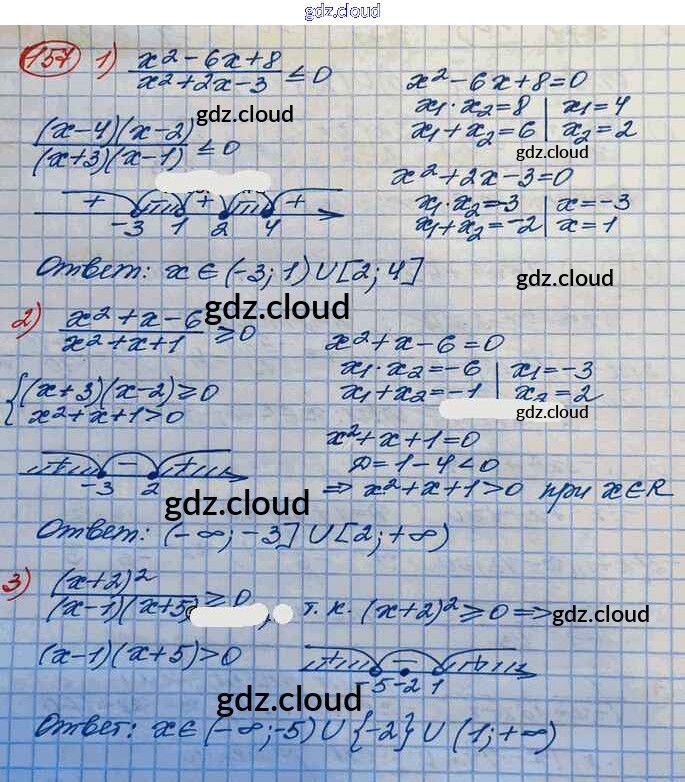 gdz.cloud
157 1) (x² - 6x + 8)/(x² + 2x - 3) ≤ 0
x² - 6x + 8 = 0
x₁ · x₂ = 8 | x₁ = 4
x₁ + x₂ = 6 | x₂ = 2
gdz.cloud
gdz.cloud
((x-4)(x-2))/((x+3)(x-1)) ≤ 0
x² + 2x - 3 = 0
x₁ · x₂ = -3 | x = -3
x₁ + x₂ = -2 | x = 1
+ + +
-3 1 2 4
Ответ: x ∈ (-3; 1) ∪ [2; 4]
gdz.cloud
gdz.cloud
2) (x² + x - 6)/(x² + x + 1) ≥ 0
x² + x - 6 = 0
x₁ · x₂ = -6 | x₁ = -3
x₁ + x₂ = -1 | x₂ = 2
gdz.cloud
{(x+3)(x-2) ≥ 0
x² + x + 1 > 0
x² + x + 1 = 0
D = 1 - 4 < 0
⇒ x² + x + 1 > 0 при x ∈ R
+ - +
-3 2
gdz.cloud
Ответ: (-∞; -3] ∪ [2; +∞)
3) (x+2)²/((x-1)(x+5)) ≥ 0, т.к. (x+2)² ≥ 0 ⇒
gdz.cloud
(x-1)(x+5) > 0
+ - +
-5 -2 1
gdz.cloud
Ответ: x ∈ (-∞; -5) ∪ {-2} ∪ (1; +∞)